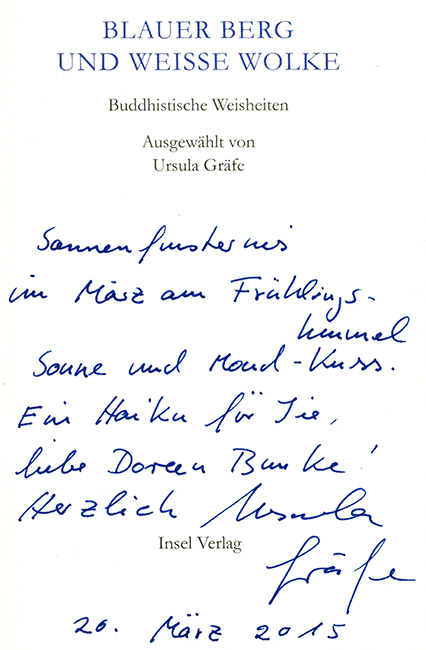 BLAUER BERG
UND WEISSE WOLKE
Buddhistische Weisheiten
Ausgewählt von
Ursula Gräfe
Sonnenfinsternis
im März am Frühlings-
himmel
Sonne und Mond-Kuss.
Ein Haiku für Sie,
liebe Doreen Bunke!
Herzlich Ursula
Insel Verlag
Gräfe
20. März 2015